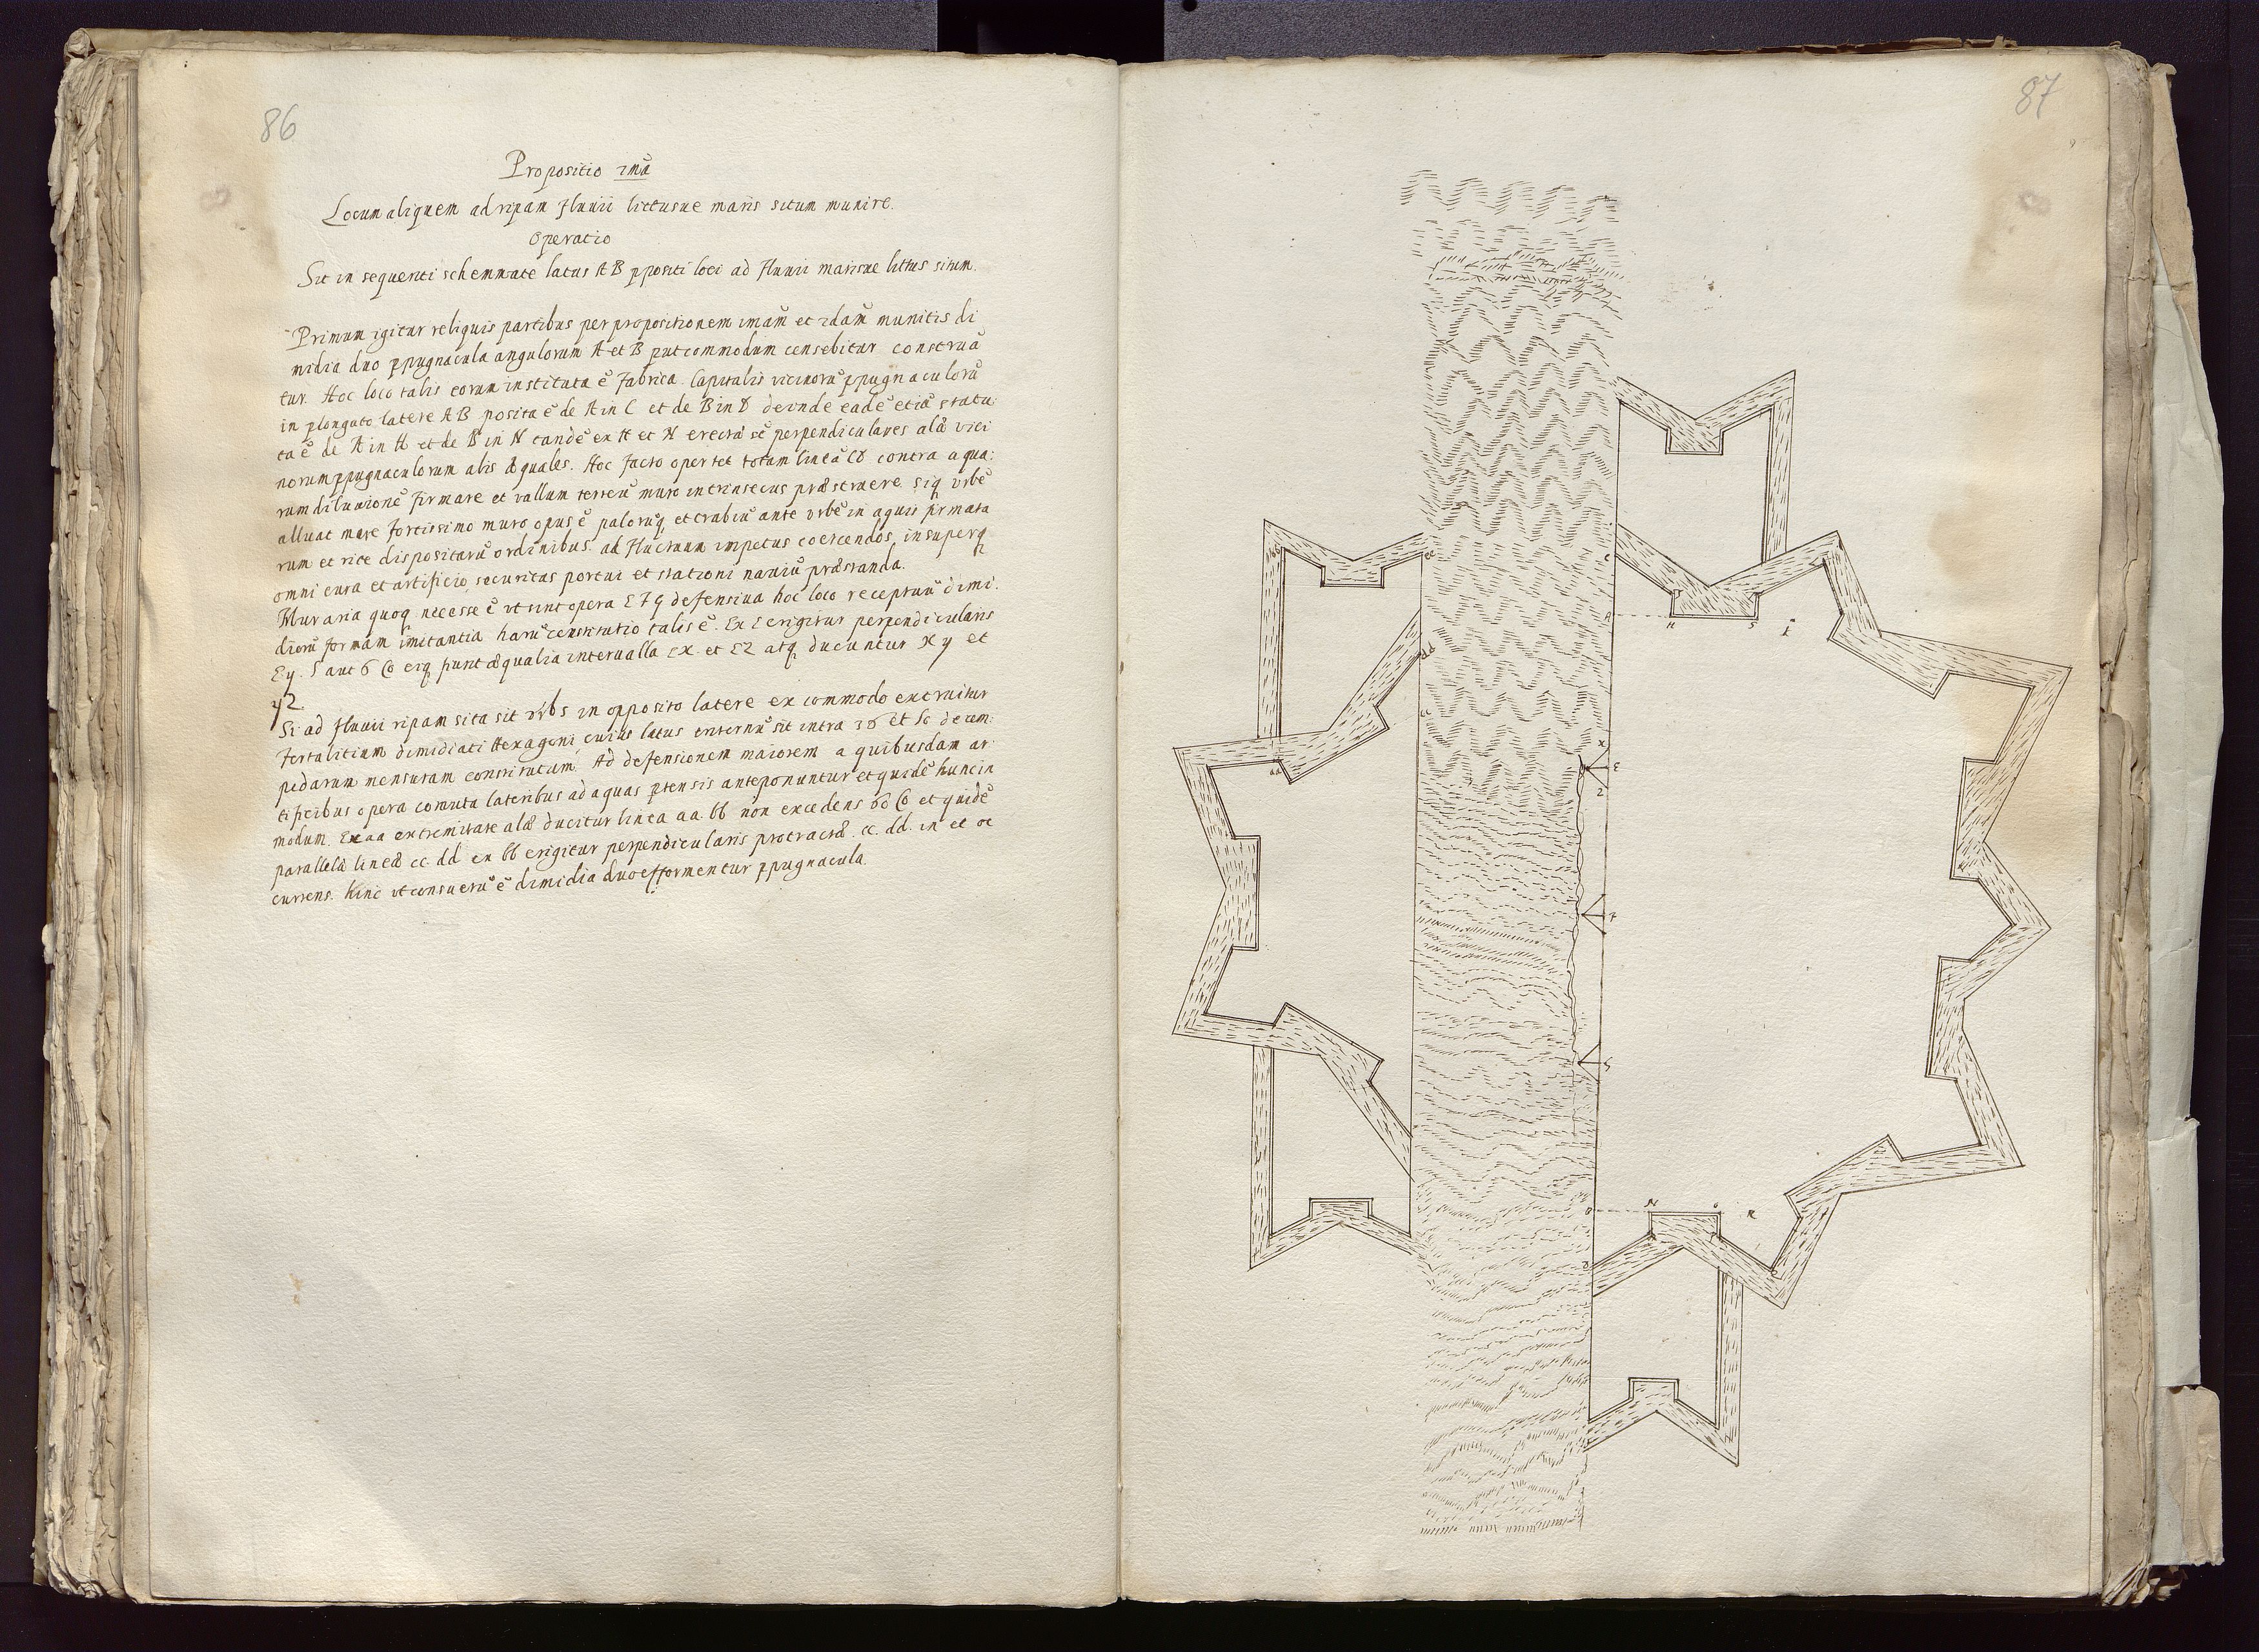 86
Propositio 1mā
Locum aliquem ad ripam fluuii littusue maris situm munire.
Operatio
Sit in sequenti schemmate latus AB ppositi loci ad fluuii marisue littus situm.
Primum igitur reliquis partibus per propositionem imam et 2dam munitis di
midia duo ppugnacula angulorum A et B put commodum censebitur construā
tur. Hoc loco talis eorum instituta ē fabrica. Capitalis vicinorū ppugnaculorū
in plongato latere AB posita ē de A in C et de B in D deinde eadē etiā statu
ta ē de A in H et de B in N tandē ex H et N erectæ sē perpendiculares alæ vici
norum ppugnaculorum alis æquales. Hoc facto oportet totam lineā CD contra aqua:
rum diluuionē firmare et vallum terreū muro intrinsecus præstruere. Siq vrbē
alluat mare fortissimo muro opus ē palorūq et trabiū ante vrbē in aquis firmata
rum et rite dispositarū ordinibus ad fluctuum impetus coercendos, insuperq
omni cura et artificio securitas portui et stationi nauiū præstanda.
Muraria quoq necesse ē vt sint opera E F G defensiua hoc loco receptuū dimi:
diorū formam imitantia harū constitutio talis ē. Ex E erigitur perpendicularis
Ey. 5 aut 6 eiq fiunt æqualia interualla EX et EZ atq ducuntur Xy et
yZ
Si ad fluuii ripam sita sit vrbs in opposito latere ex commodo extruitur
fortalitium dimidiati Hexagoni cuius latus internū sit intra 36 et 50 decem:
pedarum mensuram constitutum. Ad defensionem maiorem a quibusdam ar
tificibus opera cornuta lateribus ad aquas ptensis anteponuntur et quidē hunc in
modum. Ex aa extremitate alæ ducitur linea aa. bb non excedens 60 et quidē
parallela lineæ cc. dd ex bb erigitur perpendicularis protractæ cc. dd. in ee oc
currens. Hinc vt consuetū ē dimidia duo efformentur ppugnacula.
87
bb
ee
C
A
H
S
I
dd
cc
aa
X
E
Z
F
G
B
N
O
R
D